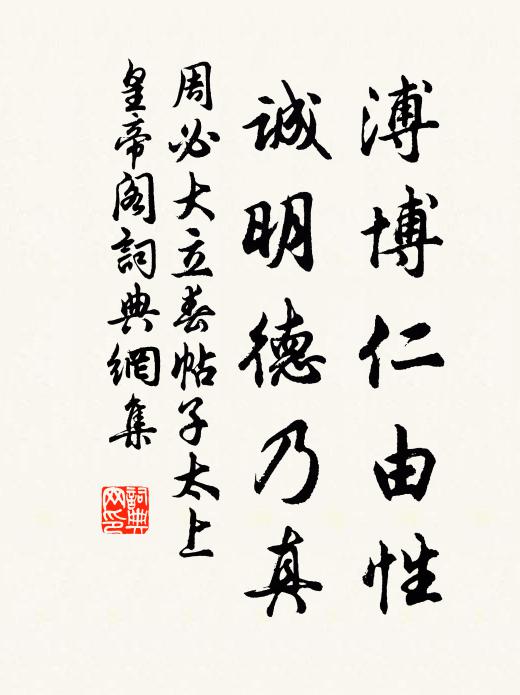 溥博仁由性
誠明德乃真
周必大立春帖子太上
皇帝阁詞典網集
詞典
网印